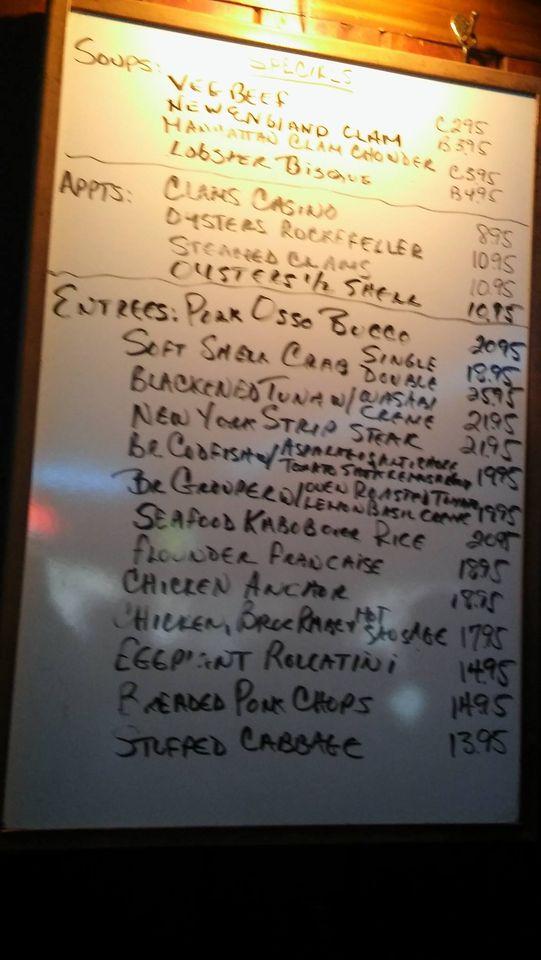 SPECIALS
SOUPS: VEG BEEF C 295
NEW ENGLAND CLAM B 395
MANHATTAN CLAM CHOWDER C 395
LOBSTER BISQUE B 495
APPTS: CLAMS CASINO 895
OYSTERS ROCKEFELLER 1095
STEAMED CLAMS 10.95
OYSTERS 1/2 SHELL 10.95
ENTREES: PORK OSSO BUCCO 2095
SOFT SHELL CRAB SINGLE 18.95
DOUBLE 2595
BLACKENED TUNA W/ WASABI CREME 2195
NEW YORK STRIP STEAK 21.95
BR CODFISH W/ ASPARAGUS ARTICHOKE
TOMATO 1995
BR GROUPER W/ OVEN ROASTED TOMATO
LEMON BASIL CREME 1995
SEAFOOD KABOB OVER RICE 2095
FLOUNDER FRANCAISE 1895
CHICKEN ANCHOR 18.95
CHICKEN, BROC RABE, HOT
SAUSAGE 1795
EGGPLANT ROLLATINI 1495
BREADED PORK CHOPS 1495
STUFFED CABBAGE 13.95